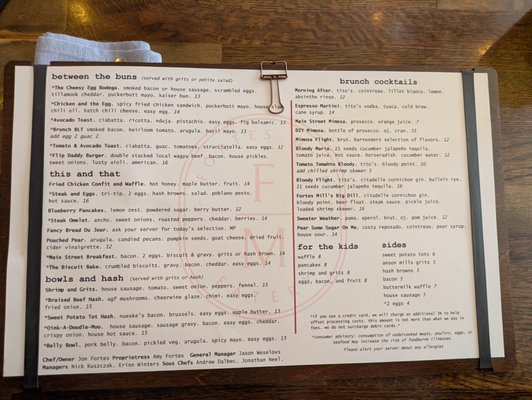 between the buns (served with grits or petite salad)
*The Cheesy Egg Bodega. smoked bacon or house sausage. scrambled eggs.
tillamook cheddar. puckerbutt mayo. kaiser bun. 13
*Chicken and the Egg. spicy fried chicken sandwich. puckerbutt mayo. house slaw
chili oil. hatch chili cheese. easy egg. 14
*Avocado Toast. ciabatta. ricotta. nduja. pistachio. easy eggs. fig balsamic. 13
*Brunch BLT smoked bacon. heirloom tomato. arugula. basil mayo. 13
add egg 2 guac 2
*Tomato & Avocado Toast. ciabatta. guac. tomatoes. stracciatella. easy eggs. 12
*Flip Daddy Burger. double stacked local wagyu beef. bacon. house pickles.
sweet onions. lusty aioli. american. 16
this and that
Fried Chicken Confit and Waffle. hot honey. maple butter. fruit. 14
*Steak and Eggs. tri-tip. 2 eggs. hash browns. salad. poblano pesto.
hot sauce. 16
Blueberry Pancakes. lemon zest. powdered sugar. berry butter. 12
*Steak Omelet. ancho. sweet onions. roasted peppers. cheddar. berries. 14
Fancy Bread Du Jour. ask your server for today's selection. MP
Poached Pear. arugula. candied pecans. pumpkin seeds. goat cheese. dried fruit.
cider vinaigrette. 12
*Main Street Breakfast. bacon. 2 eggs. biscuit & gravy. grits or hash brown. 14
*The Biscuit Bake. crumbled biscuits. gravy. bacon. cheddar. easy eggs. 14
bowls and hash (served with grits or hash)
Shrimp and Grits. house sausage. tomato. sweet onion. peppers. fennel. 15
*Braised Beef Hash. ugf mushrooms. cheerwine glaze. chimi. easy eggs.
fried onion. 15
*Sweet Potato Tot Hash. nueske's bacon. brussels. easy eggs. maple butter. 13
*Oink-A-Doodle-Moo. house sausage. sausage gravy. bacon. easy eggs. cheddar.
crispy onion. house hot sauce. 15
*Belly Bowl. pork belly. bacon. pickled veg. arugula. spicy mayo. easy eggs. 13
Chef/Owner Jon Fortes Proprietress Amy Fortes General Manager Jason Weselova
Managers Nick Kuszczak. Erinn Winters Sous Chefs Andrew Dalbec. Jonathan Neel.
brunch cocktails
Morning After. tito's. cointreau. lillet blanc. lemon.
absinthe rinse. 12
Espresso Martini. tito's vodka. tuaca. cold brew.
cane syrup. 14
Main Street Mimosa. prosecco. orange juice. 7
DIY Mimosa. bottle of prosecco. oj. cran. 35
Mimosa Flight. brut. bartenders selection of flavors. 12
Bloody Maria. 21 seeds cucumber jalapeño tequila.
tomato juice. hot sauce. horseradish. cucumber water. 12
Bloody Tomahto Bloody. tito's. bloody point. 10
add chilled shrimp skewer 5
Bloody Flight. tito's. citadelle cornichon gin. bullett rye.
21 seeds cucumber jalapeño tequila. 16
Fortes Mill's Big Drill. citadelle cornichon gin.
bloody point. beer float. steak sauce. pickle juice.
loaded shrimp skewer. 16
Sweater Weather. pama. aperol. brut. oj. pom juice. 12
Pear Some Sugar On Me. costa reposado. cointreau. pear syrup.
house sour. 14
for the kids
waffle 8
pancakes 8
shrimp and grits 8
eggs, bacon, and fruit 8
sides
sweet potato tots 6
anson mills grits 5
hash browns 5
bacon 5
buttermilk waffle 7
house sausage 5
*2 eggs 4
*if you use a credit card, we will charge an additional 3% to help
offset processing costs. this amount is not more than what we pay in
fees. we do not surcharge debit cards.*
*consumer advisory: consumption of undercooked meats, poultry, eggs, or
seafood may increase the risk of foodborne illnesses.
Please alert your server about any allergies
F
M